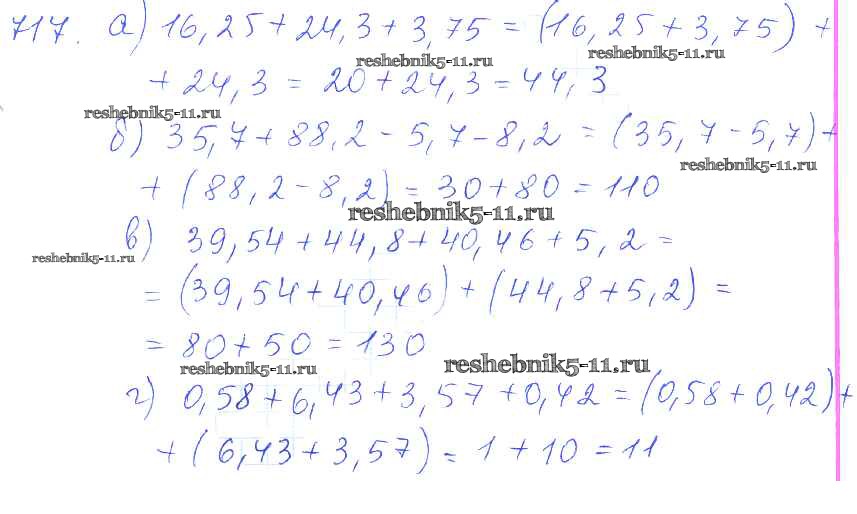 717. а) 16,25 + 24,3 + 3,75 = (16,25 + 3,75) +
reshebnik5-11.ru
reshebnik5-11.ru
+ 24,3 = 20 + 24,3 = 44,3
reshebnik5-11.ru
б) 35,7 + 88,2 - 5,7 - 8,2 = (35,7 - 5,7) +
reshebnik5-11.ru
+ (88,2 - 8,2) = 30 + 80 = 110
reshebnik5-11.ru
в) 39,54 + 44,8 + 40,46 + 5,2 =
reshebnik5-11.ru
= (39,54 + 40,46) + (44,8 + 5,2) =
= 80 + 50 = 130
reshebnik5-11.ru
reshebnik5-11.ru
г) 0,58 + 6,43 + 3,57 + 0,42 = (0,58 + 0,42) +
+ (6,43 + 3,57) = 1 + 10 = 11